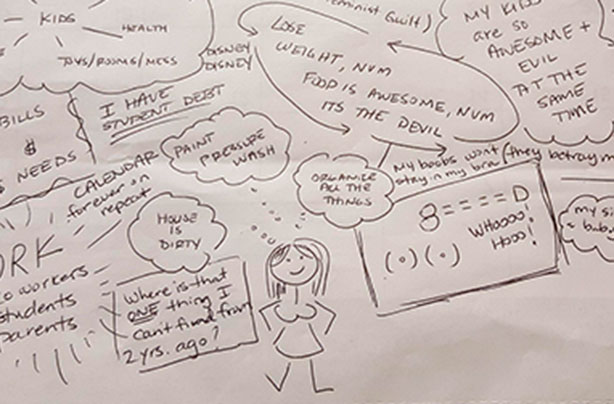 (Feminist Guilt)
KIDS
HEALTH
TOYS/ROOMS/MESS
DISNEY
DISNEY
LOSE
WEIGHT, NUM
FOOD IS AWESOME, NUM
ITS THE DEVIL
MY KIDS
are so
AWESOME +
EVIL
AT THE
SAME
TIME
BILLS
$
NEEDS
I HAVE
STUDENT DEBT
PAINT
PRESSURE
WASH
ORGANIZE
ALL THE
THINGS
My boobs wont
stay in my bra
(they betray m
CALENDAR
forever on
repeat
HOUSE
IS
DIRTY
8====D
WHoooo!
Hoo!
(o)(o)
my s
bab
ORK
co workers
students
parents
Where is that
ONE thing I
can't find from
2 yrs. ago?